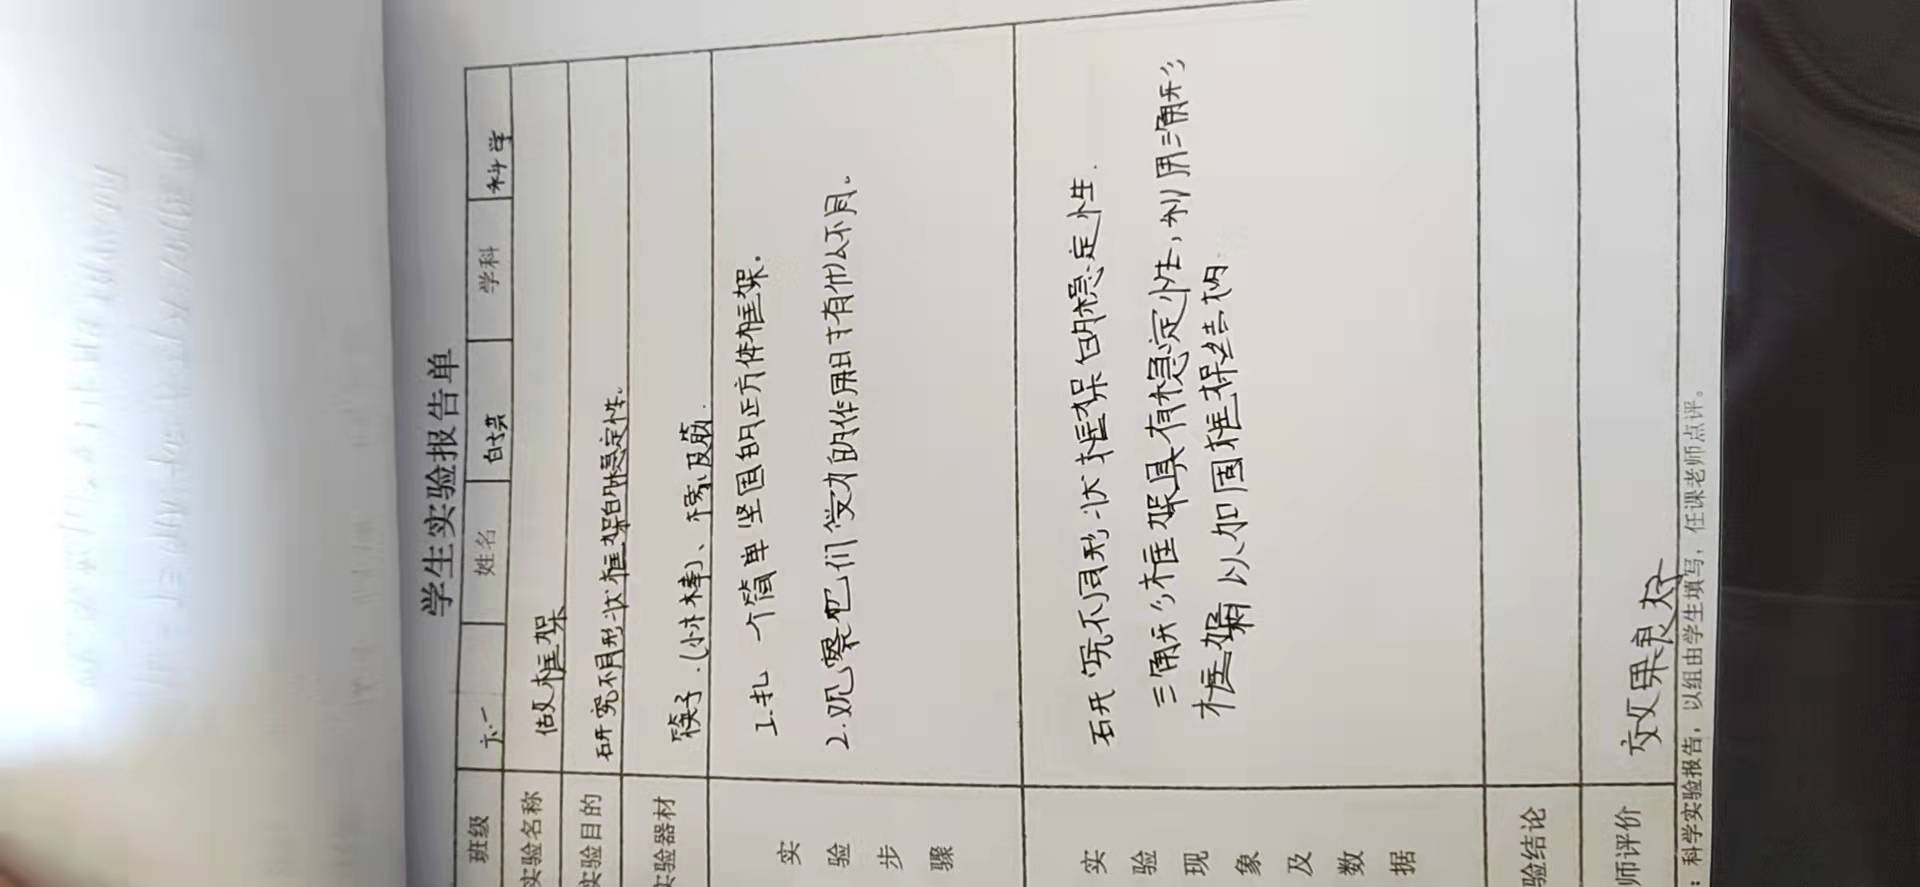 学生实验报告单
班级 六.一 姓名 学科 科学
实验名称 做框架
实验目的 研究不同形状框架的稳定性.
实验器材 筷子.(小木棒)、橡皮筋.
实验步骤
1.扎一个简单坚固的正方体框架.
2.观察它们受力的作用时有什么不同。
实验现象及数据
研究不同形状框架的稳定性.
三角形框架具有稳定性,利用三角形
框架可以加固框架结构.
验结论
师评价 效果良好
:科学实验报告,以组由学生填写,任课老师点评。